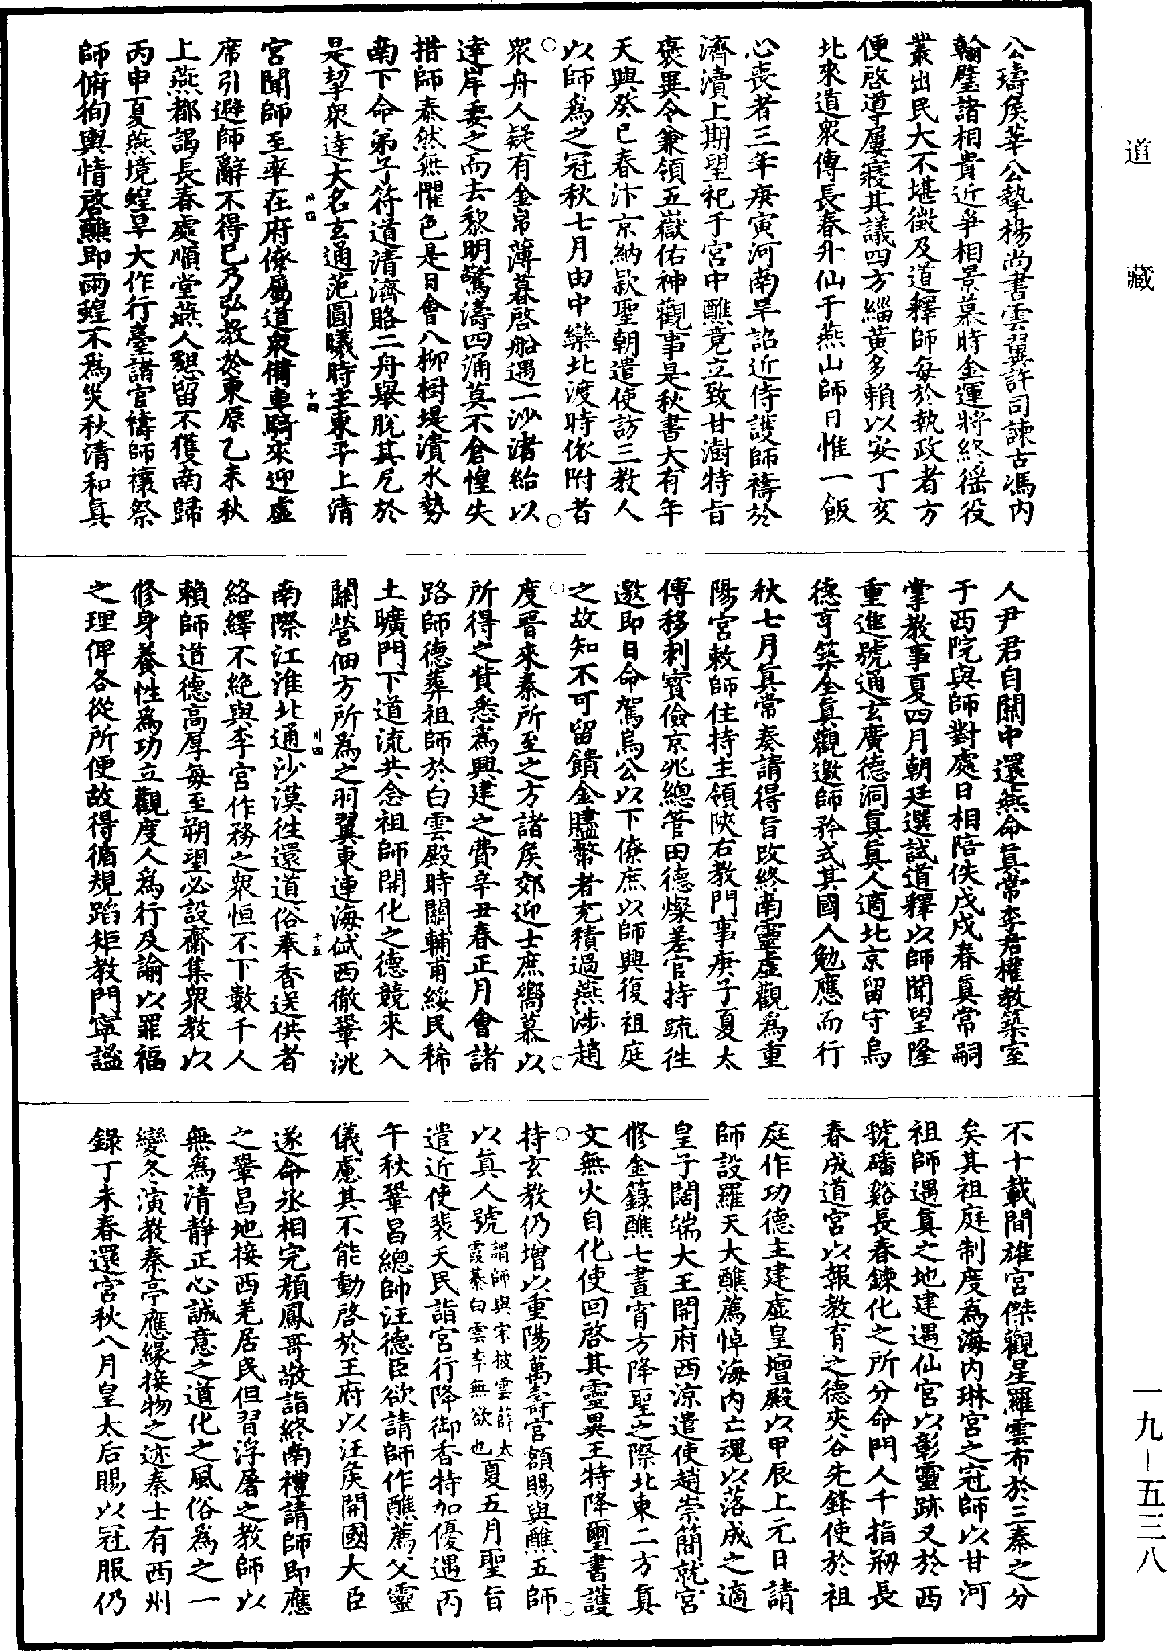 道藏
公璹侯莘公摯楊尚書雲翼許司諫古馮內
翰璧諸相貴近爭相景慕時金運將終徭役
叢出民大不堪徵及道釋師每於執政者方
便啓導屢寢其議四方緇黃多賴以安丁亥
北來道衆傳長春升仙于燕山師日惟一飯
心喪者三年庚寅河南旱詔近侍護師禱於
濟瀆上期望祀于宮中醮竟立致甘澍特旨
褒異令兼領五嶽佑神觀事是秋書大有年
天興癸巳春汴京納款聖朝遣使訪三教人
以師爲之冠秋七月由中欒北渡時依附者
衆舟人疑有金帛薄暮啓船遇一沙渚紿以
達岸委之而去黎明驚濤四涌莫不倉惶失
措師泰然無懼色是日會八柳樹堤潰水勢
南下命弟子符道清濟賂二舟舉脫其厄於
是挈衆達大名玄通范圓曦時主東平上清
宮聞師至率在府僚屬道衆備車騎來迎虛
席引避師辭不得已乃弘教於東原乙未秋
上燕都謁長春處順堂燕人懇留不獲南歸
丙申夏燕境蝗旱大作行臺諸官禱師禳祭
師俯徇輿情啓醮即雨蝗不爲災秋清和真
人尹君自關中還燕命真常李君權教築室
于西院與師對處日相陪佚戊戌春真常嗣
掌教事夏四月朝廷選試道釋以師聞望隆
重進號通玄廣德洞真真人適北京留守烏
德亨築全真觀邀師矜式其國人勉應而行
秋七月真常奏請得旨改終南靈虛觀爲重
陽宮敕師住持主領陝右教門事庚子夏太
傅移剌寶儉京兆總管田德燦差官持疏徃
邀即日命駕烏公以下僚庶以師興復祖庭
之故知不可留饋金贐幣者充積過燕涉趙
度晉來秦所至之方諸侯郊迎士庶嚮慕以
所得之貲悉爲興建之費辛丑春正月會諸
路師德葬祖師於白雲殿時關輔甫綏民稀
土曠門下道流共念祖師開化之德競來入
關營佃方所爲之羽翼東連海岱西徹鞏洮
南際江淮北通沙漠徃還道俗奉香送供者
絡繹不絕與李宮作務之衆恒不下數千人
賴師道德高厚每至朔望必設齋集衆教以
修身養性爲功立觀度人爲行及諭以罪福
之理俾各從所便故得循規蹈矩教門寧謐
不十載間雄宮傑觀星羅雲布於三秦之分
矣其祖庭制度為海內琳宮之冠師以甘河
祖師遇真之地建遇仙宮以彰靈跡又於西
虢磻谿長春鍊化之所分命門人千指剏長
春成道宮以報教育之德夾谷先鋒使於祖
庭作功德主建虛皇壇殿以甲辰上元日請
師設羅天大醮薦悼海內亡魂以落成之適
皇子闊端大王開府西涼遣使趙崇簡就宮
修金籙醮七晝宵方降聖之際北東二方真
文無火自化使回啓其靈異王特降璽書護
持玄教仍增以重陽萬壽宮額賜與醮五師
以真人號謂師與宋披雲薛太霞綦白雲李無欲也夏五月聖旨
遣近使裴天民詣宮行降御香特加優遇丙
午秋鞏昌總帥汪德臣欲請師作醮薦父靈
儀慮其不能動啓於王府以汪侯開國大臣
遂命丞相完顏鳳哥敬詣終南禮請師即應
之鞏昌地接西羌居民但習浮屠之教師以
無爲清靜正心誠意之道化之風俗爲之一
變冬演教秦亭應緣接物之迹秦士有西州
錄丁未春還宮秋八月皇太后賜以冠服仍
一九–五三八